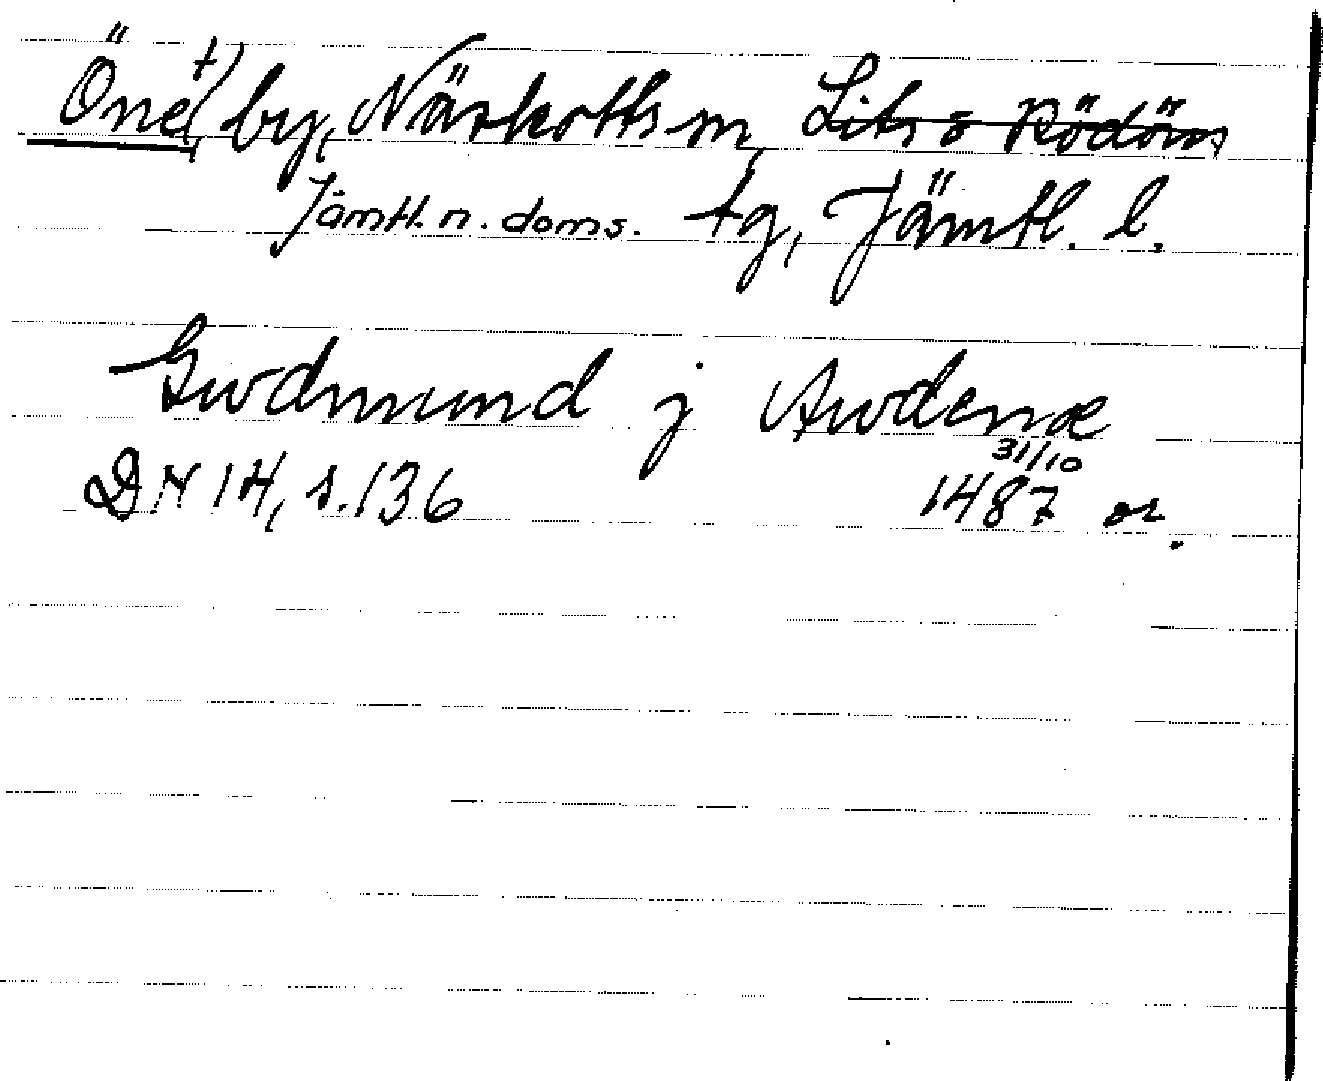 Öne(t) by, Näskotts sn, Lits o Rödöns
Jämtl. n. doms. tg, Jämtl. l.
Gwdmund j Awdenæ
DN 14, s. 136 31/10 1487 or.